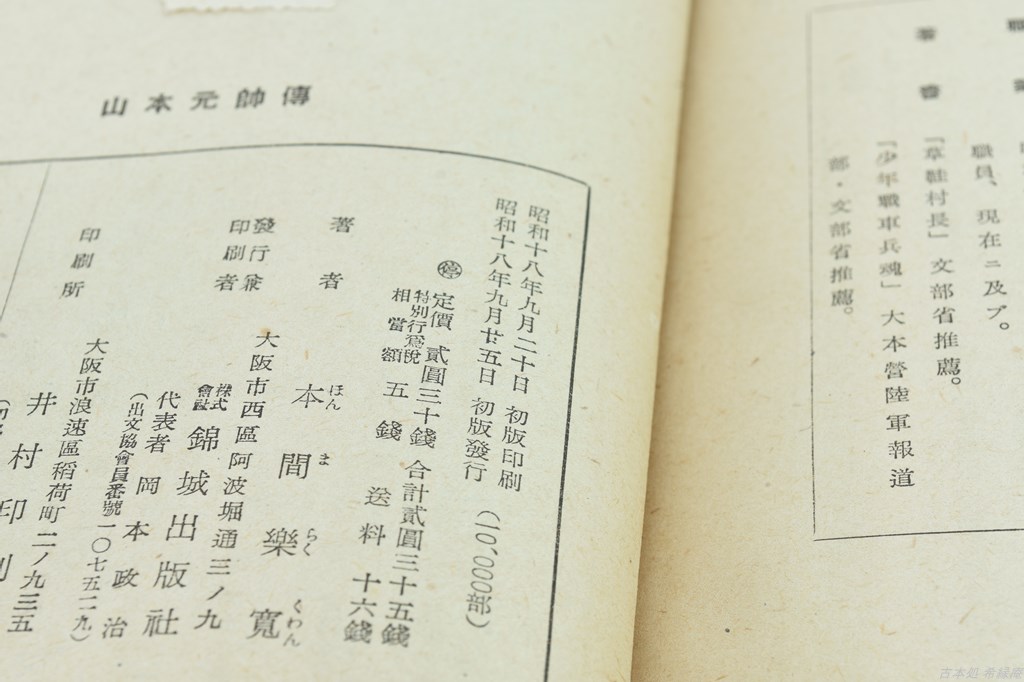 著書
職員、現在ニ及ブ。
「草鞋村長」文部省推薦。
「少年戰車兵魂」大本營陸軍報道
部・文部省推薦。
山本元帥傳
昭和十八年九月二十日 初版印刷
昭和十八年九月廿五日 初版發行 (一〇、〇〇〇部)
停 定價 貳圓三十錢 合計貳圓三十五錢
特別行爲税相當額 五錢 送料 十六錢
著者 本間樂寛
ほんまらくくわん
發行兼印刷者 大阪市西區阿波堀通三ノ九
株式會社 錦城出版社
代表者 岡本政治
(出文協會員番號一〇七五二九)
印刷所 大阪市浪速區稻荷町二ノ九三五
井村印刷
古本処 希縁庵